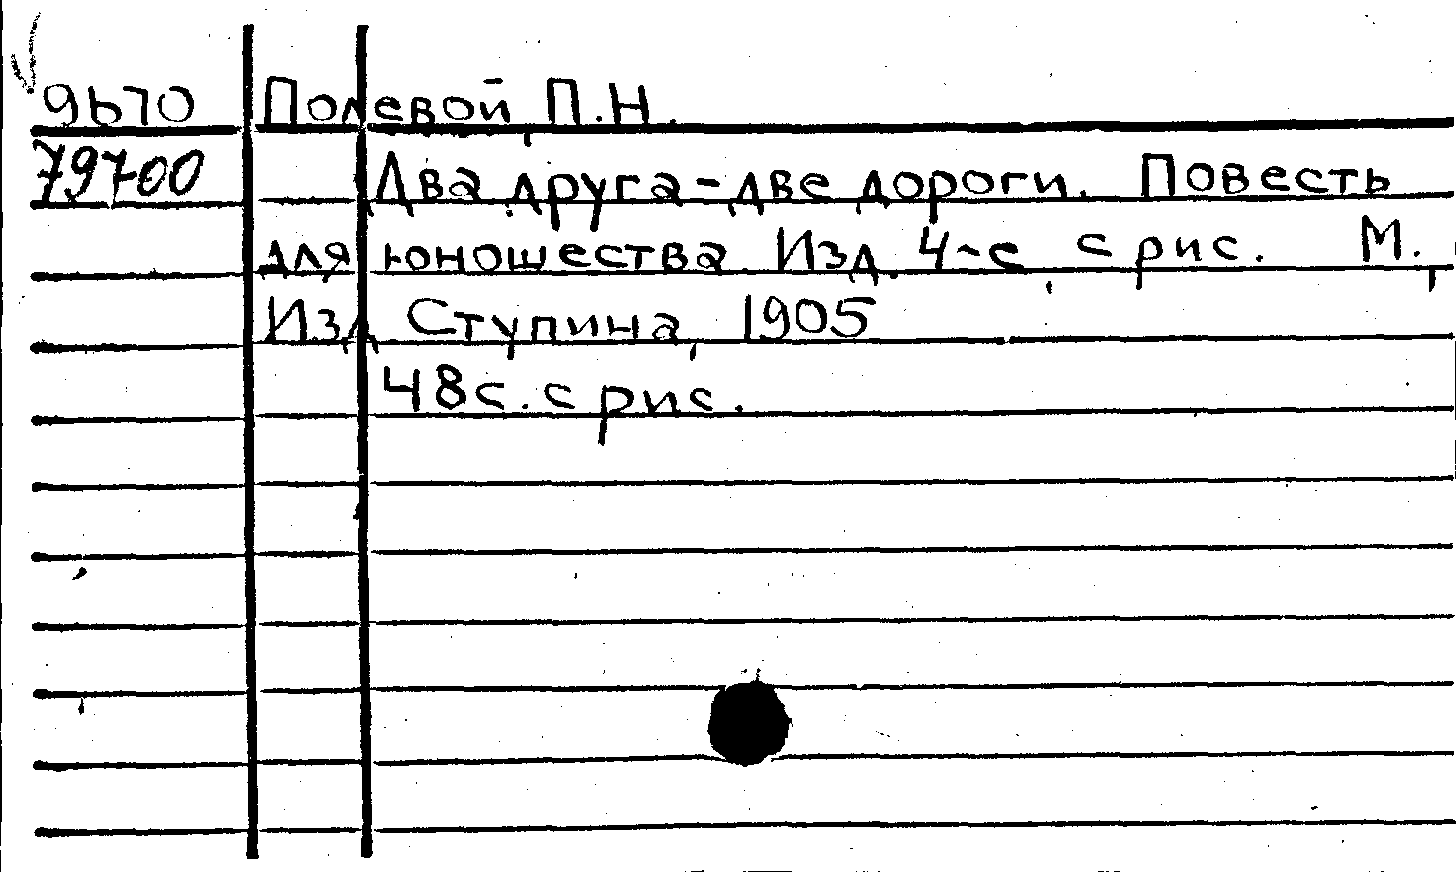 9b70 Полевой, П.Н.
79700 Два друга - две дороги. Повесть
для юношества Изд. 4-е, с рис. М.,
Изд. Ступина, 1905
48с. с рис.